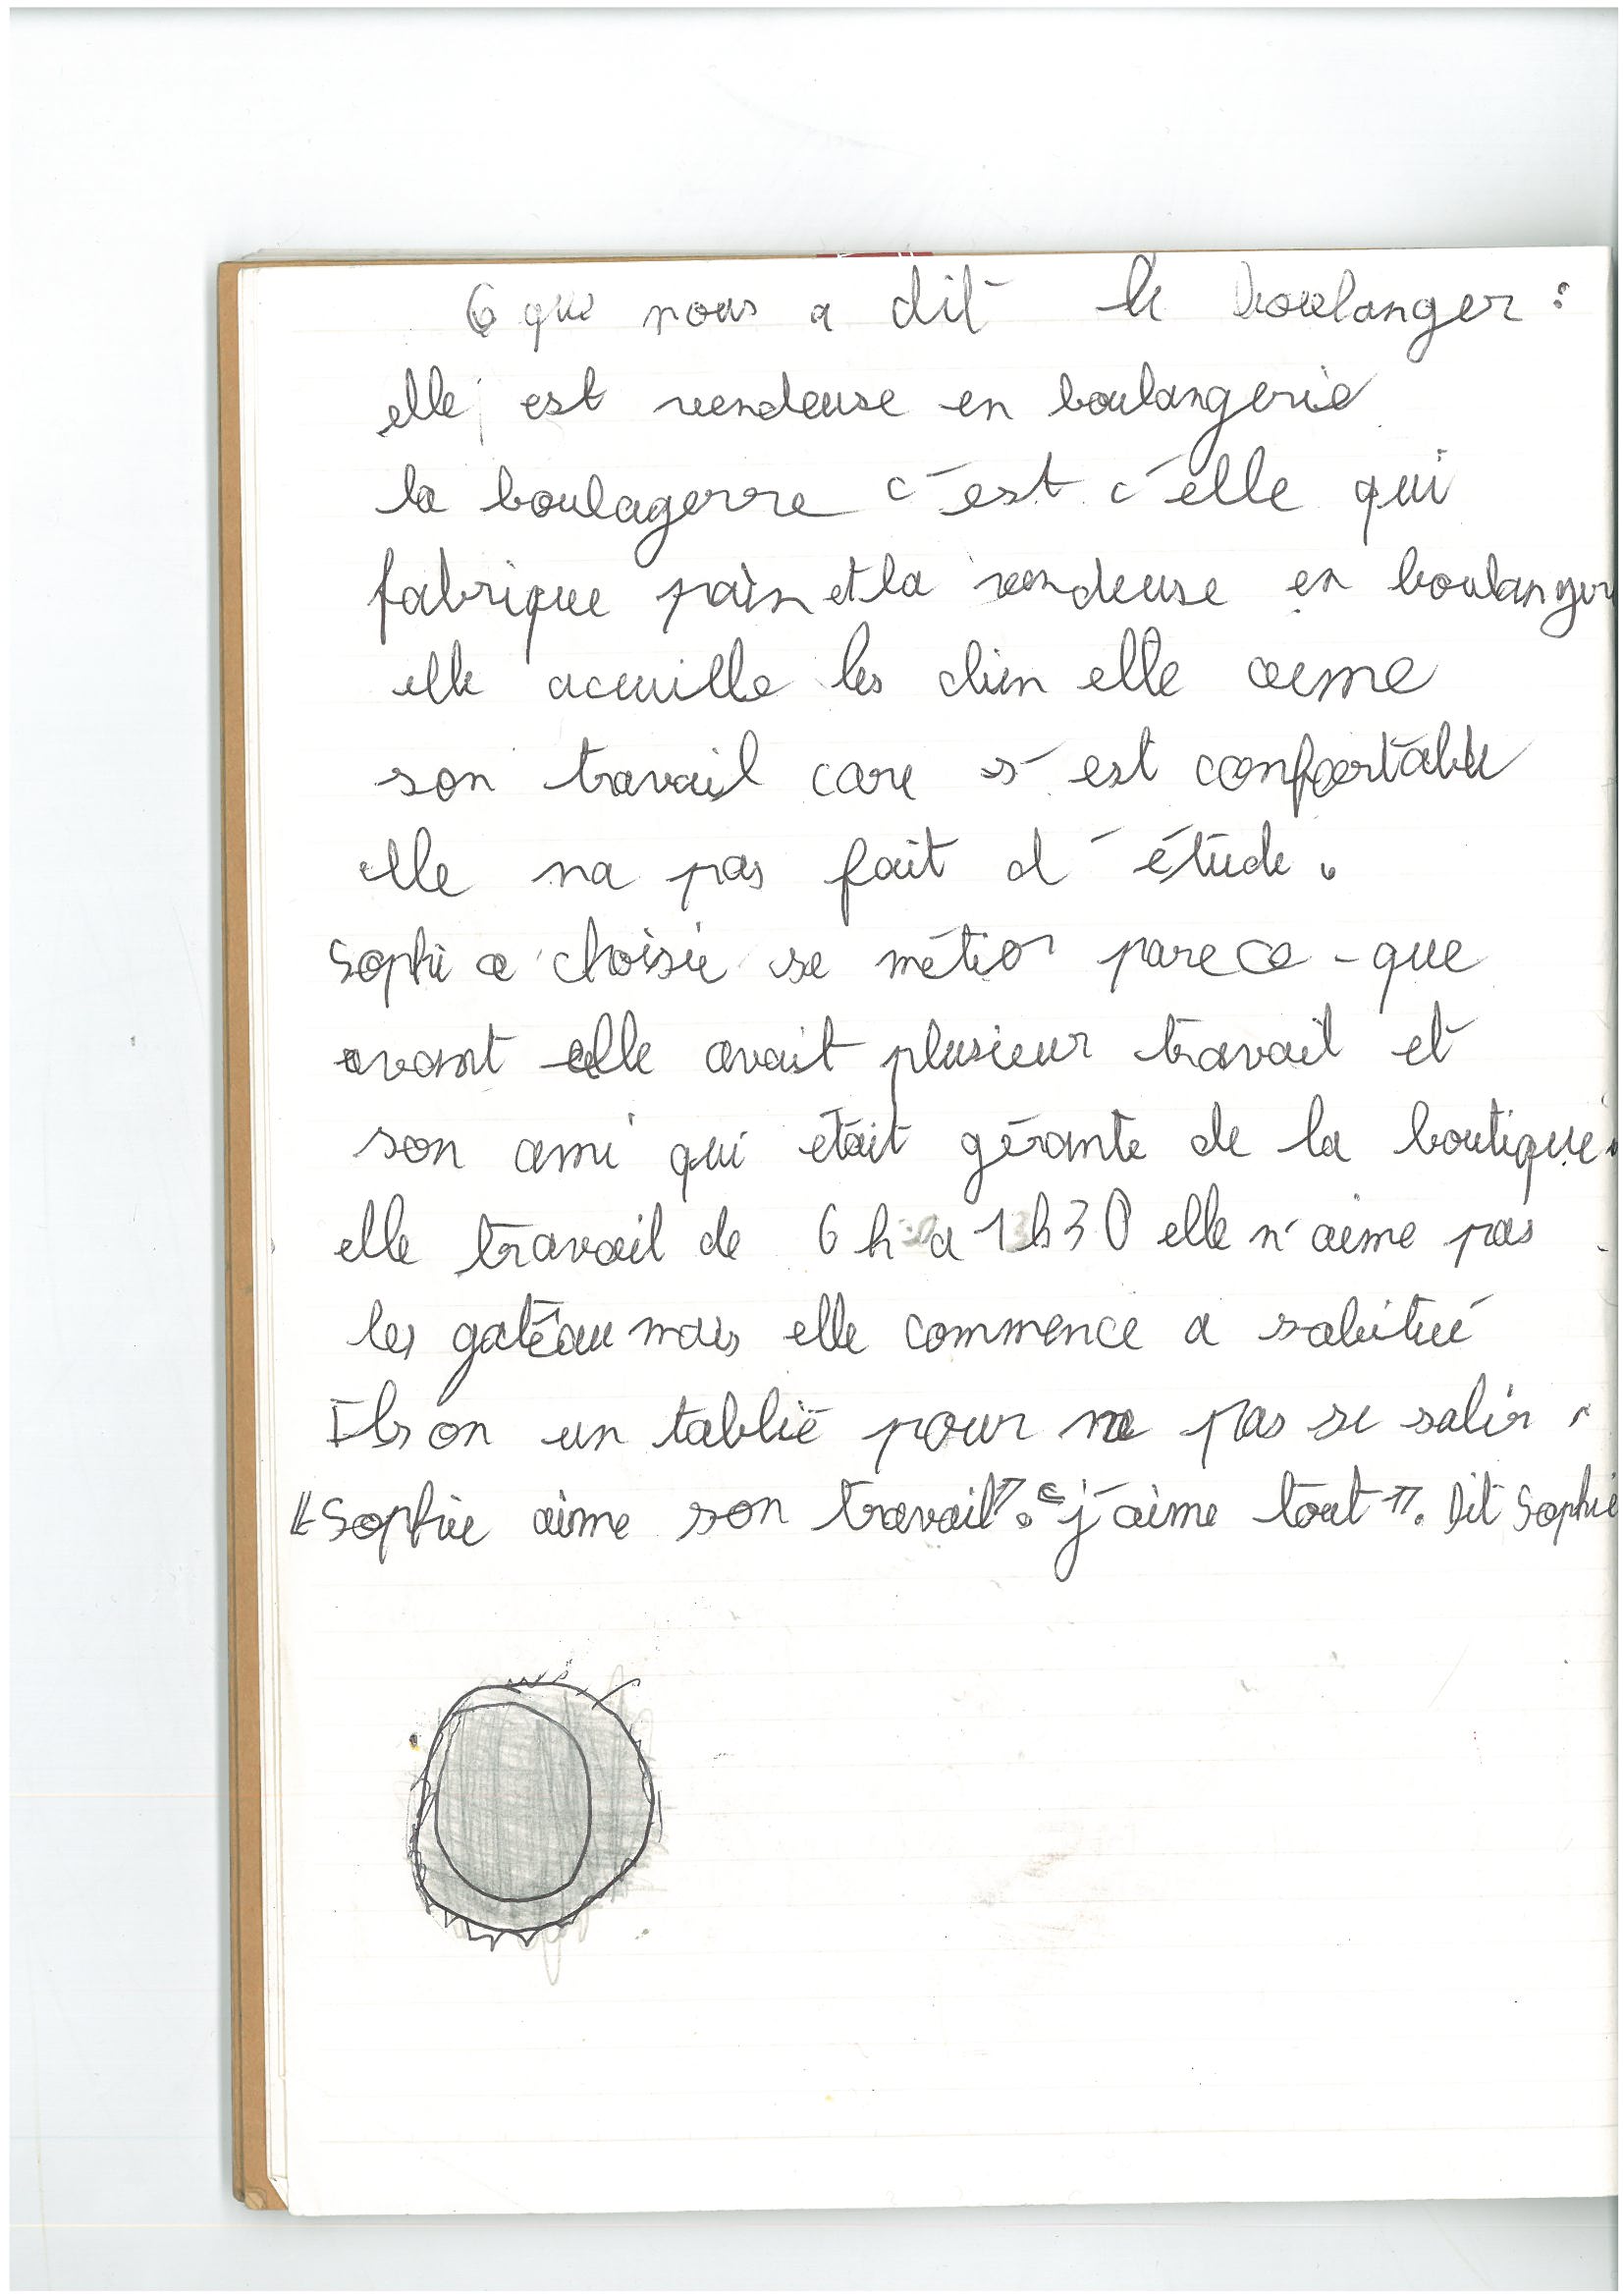 Ce que nous a dit le boulanger :
elle est vendeuse en boulangerie
la boulagerre c'est c'elle qui
fabrique pain et la vendeuse en boulanger
elle acuuille les clien elle aeme
son travail care s'est confortable
elle na pas fait d'étude.
Sophi a choisie se métier parece-que
avant elle avait plusieur travail et
son ami qui était gérante de la boutique.
elle travail de 6h a 13h30 elle n'aime pas
les gatéau mais elle commence a sabitué
Ils on un tablié pour ne pas se salir.
"Sophie aime son travail". "j'aime tout". Dit Sophie